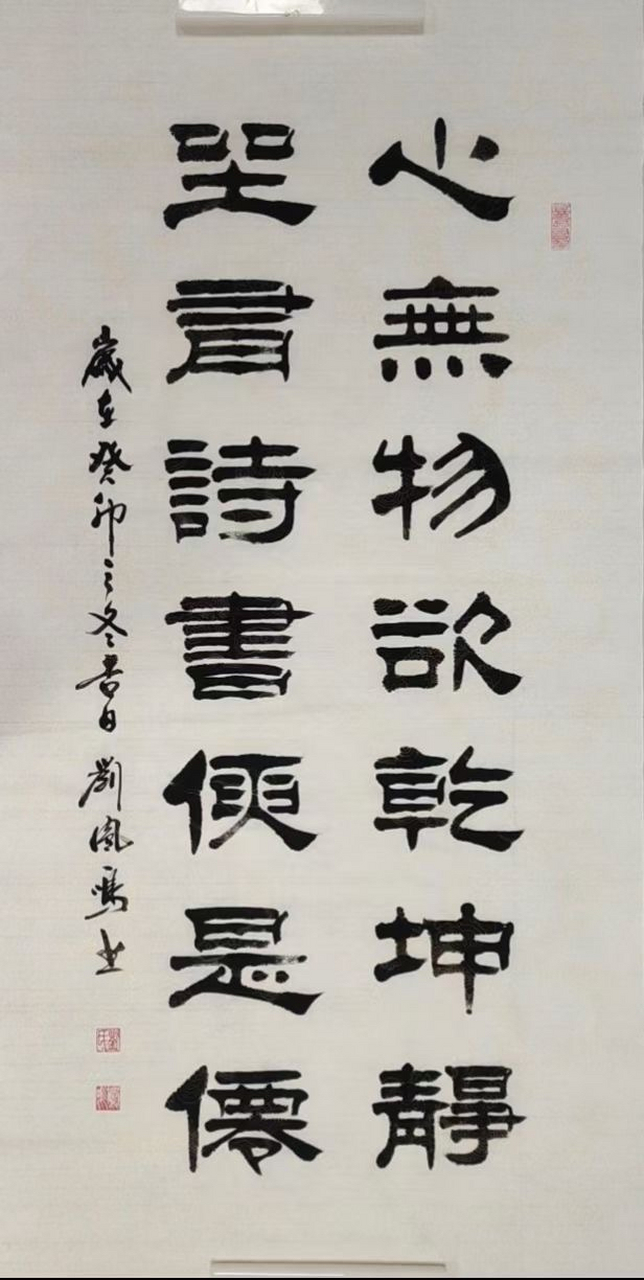 心無物欲乾坤靜
坐有詩書便是僊
歲在癸卯之冬吉日 劉鳳鳴书